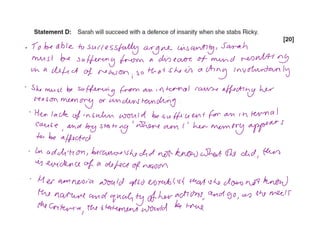 Statement D: Sarah will succeed with a defence of insanity when she stabs Ricky.
[20]
· To be able to successfully argue insanity, Sarah
must be suffering from a disease of mind resulting
in a defect of reason, so that she is acting involuntarily
· She must be suffering from an internal cause affecting her
reason memory or understanding
· Her lack of insulin would be sufficient for an internal
cause, and by stating "where am I" her memory appears
to be affected
· In addition, because she did not know what she did, this
is evidence of a defect of reason
· Her amnesia would also establish that she does not know
the nature and quality of her actions, and so, as she meets
the criteria, the statement would be true